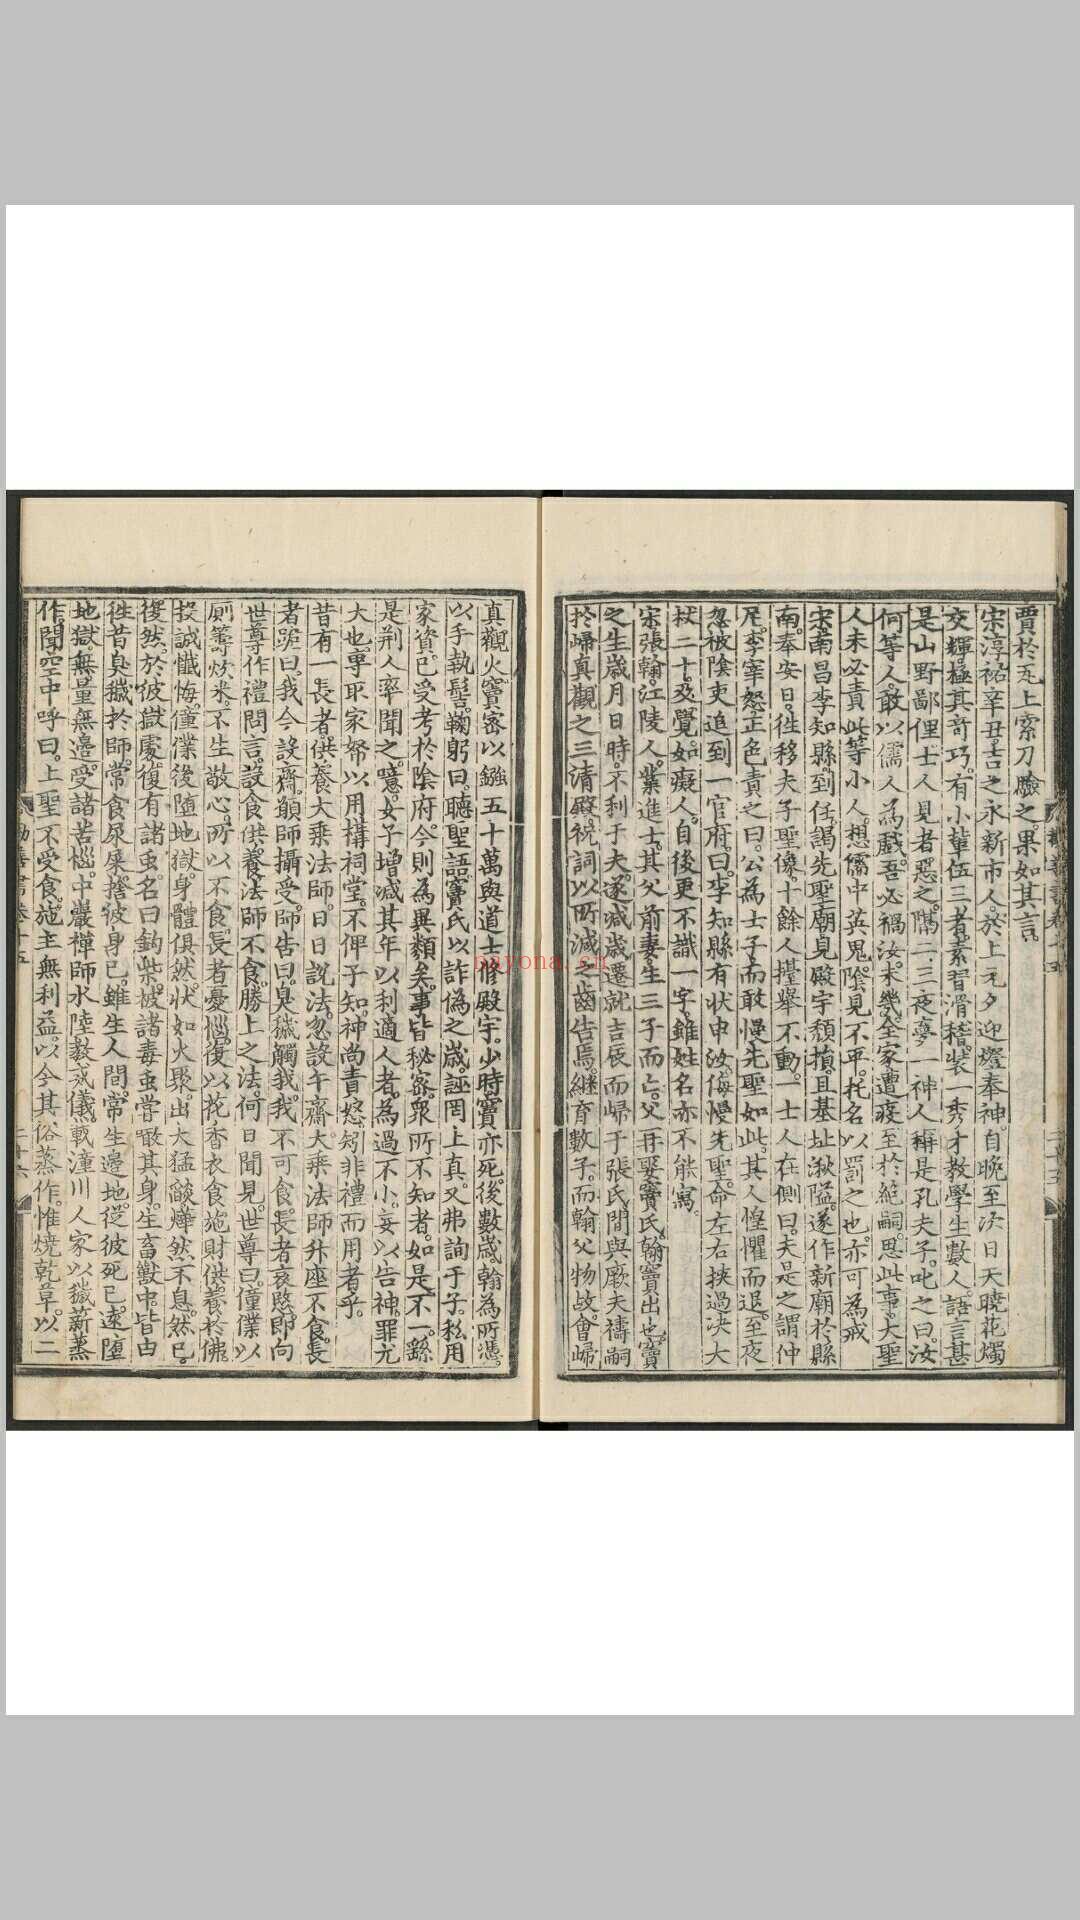 賈於瓦上索刀驗之果如其言
宋淳祐辛丑吉之永新市人於上元夕迎燈奉神自晚至次日天曉花燭
交輝極其奇巧有小輩伍三者素習滑稽裝一秀才教學生數人語言甚
是山野鄙俚士人見者惡之隔二三夜夢一神人稱是孔夫子叱之曰汝
何等人敢以儒人為戲吾必禍汝未幾全家遭疫至於絕嗣思此事大聖
人未必責此等小人想儒中英鬼陰見不平托名以罰之也亦可為戒
宋南昌李知縣到任謁先聖廟見殿宇頹損且基址湫隘遂作新廟於縣
南奉安日徃移夫子聖像十餘人擡舉不動一士人在側曰夫是之謂仲
尼李宰怒正色責之曰公為士子而敢慢先聖如此其人惶懼而退至夜
忽被陰吏追到一官府曰李知縣有狀申汝侮慢先聖命左右挾過决大
杖二十及覺如癡人自後更不識一字雖姓名亦不能寫
宋張翰江陵人業進士其父前妻生三子而亡父再娶竇氏翰竇出也竇
之生歲月日時不利于夫遂减歲遷就吉辰而歸于張氏間與厥夫禱嗣
於歸真觀之三清殿祝詞以所减之齒告焉継育數子而翰父物故會歸
真觀火竇密以鏹五十萬與道士修殿宇少時竇亦死後數歲翰為所憑
以手執髻鞠躬曰聽聖語竇氏以詐偽之歲誣罔上真又弗詢于子私用
家資已受考於陰府今則為異類矣事皆秘密衆所不知者如是不一繇
是荆人率聞之噫女子增减其年以利適人者為過不小妄以告神罪尤
大也專取家帑以用構祠堂不俾子知神尚責怒矧非禮而用者乎
昔有一長者供養大乗法師日日說法忽設午齋大乗法師升座不食長
者跪曰我今設齋願師攝受師告曰臭穢觸我我不可食長者哀愍即向
世尊作禮問言設食供養法師不食勝上之法何日聞見世尊曰僮僕以
厠籌炊米不生敬心所以不食長者憂惱復以花香衣食施財供養於佛
投誠懺悔僮僕後墮地獄身體俱然狀如火聚出大猛燄燁然不息然已
復然於彼獄處復有諸虫名曰鉤柴被諸毒虫甞噉其身生畜獸中皆由
徃昔臭穢於師常食尿屎捨彼身已雖生人間常生邊地從彼死已遠墮
地獄無量無邊受諸苦惱中巖禪師水陸教戒儀戰潼川人家以穢薪蒸
作聞空中呼曰上聖不受食施主無利益以今其俗蒸作惟燒乾草以二
勸善書卷十五
二十六